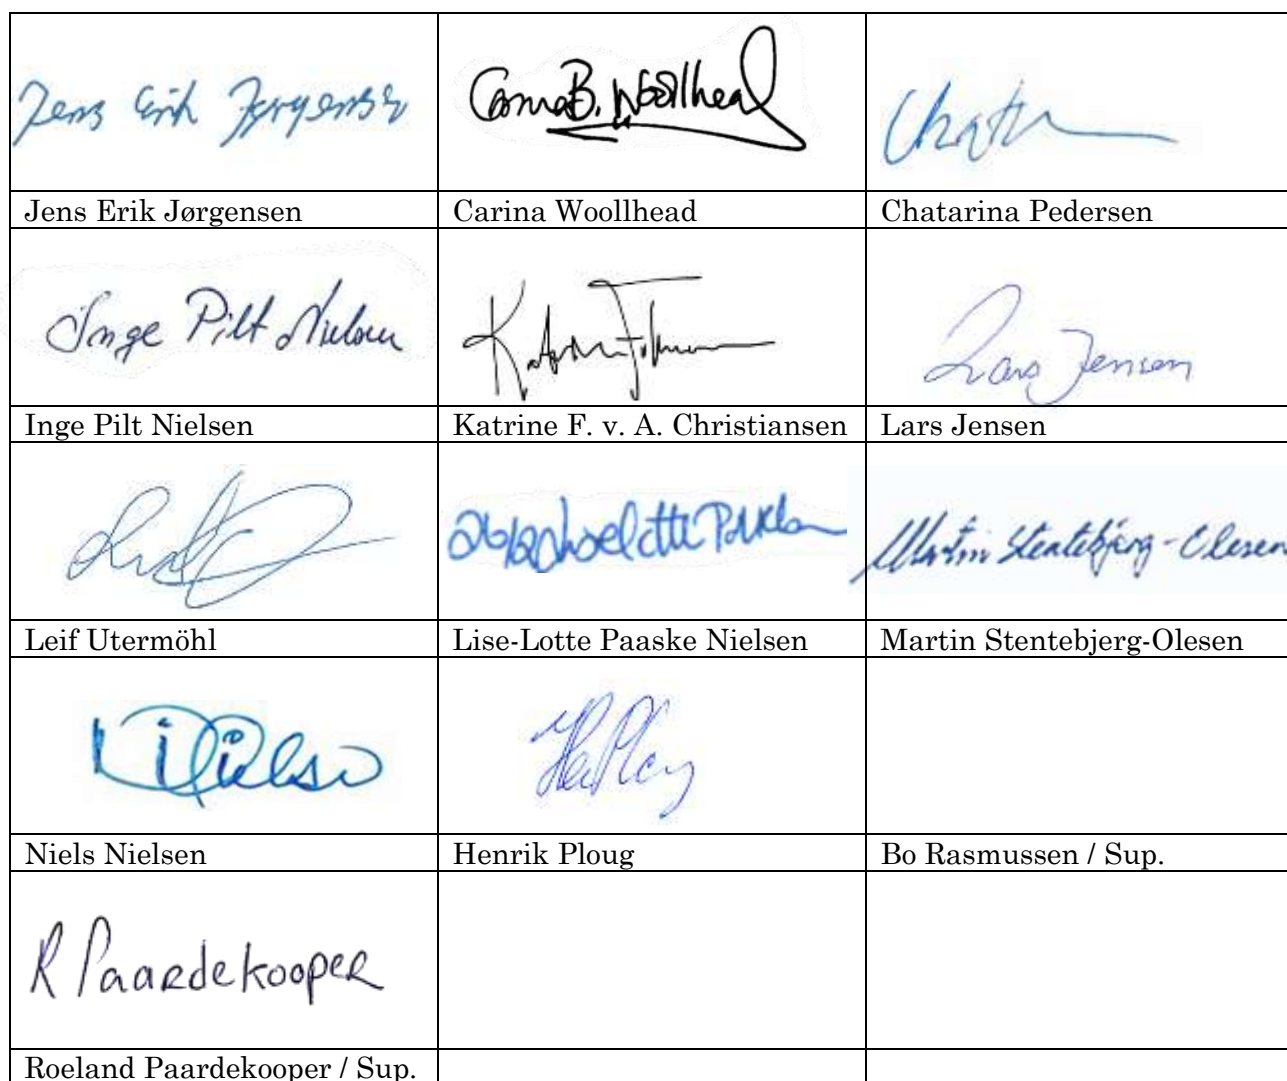 Jens Erik Jørgensen
Carina B. Woollhead
Jens Erik Jørgensen Carina Woollhead Chatarina Pedersen
Inge Pilt Nielsen
Lars Jensen
Inge Pilt Nielsen Katrine F. v. A. Christiansen Lars Jensen
Martin Stentebjerg-Olesen
Leif Utermöhl Lise-Lotte Paaske Nielsen Martin Stentebjerg-Olesen
Niels Nielsen Henrik Ploug Bo Rasmussen / Sup.
R Paardekooper
Roeland Paardekooper / Sup.